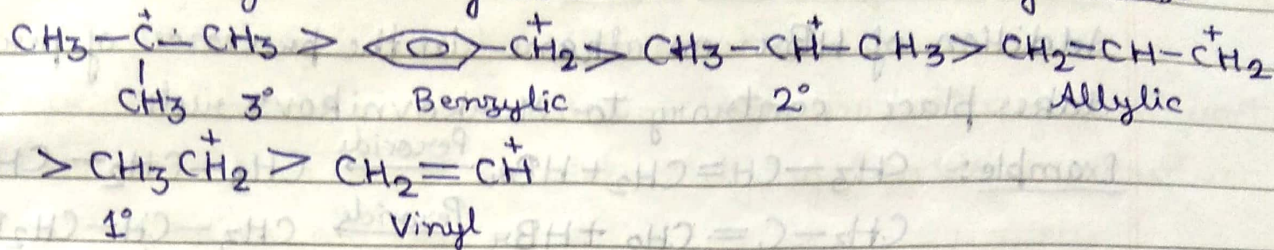 CH3–C⁺–CH3 > ⌬–C⁺H2 > CH3–C⁺H–CH3 > CH2=CH–C⁺H2
CH3 3° Benzylic 2° Allylic
> CH3C⁺H2 > CH2=C⁺H
1° Vinyl